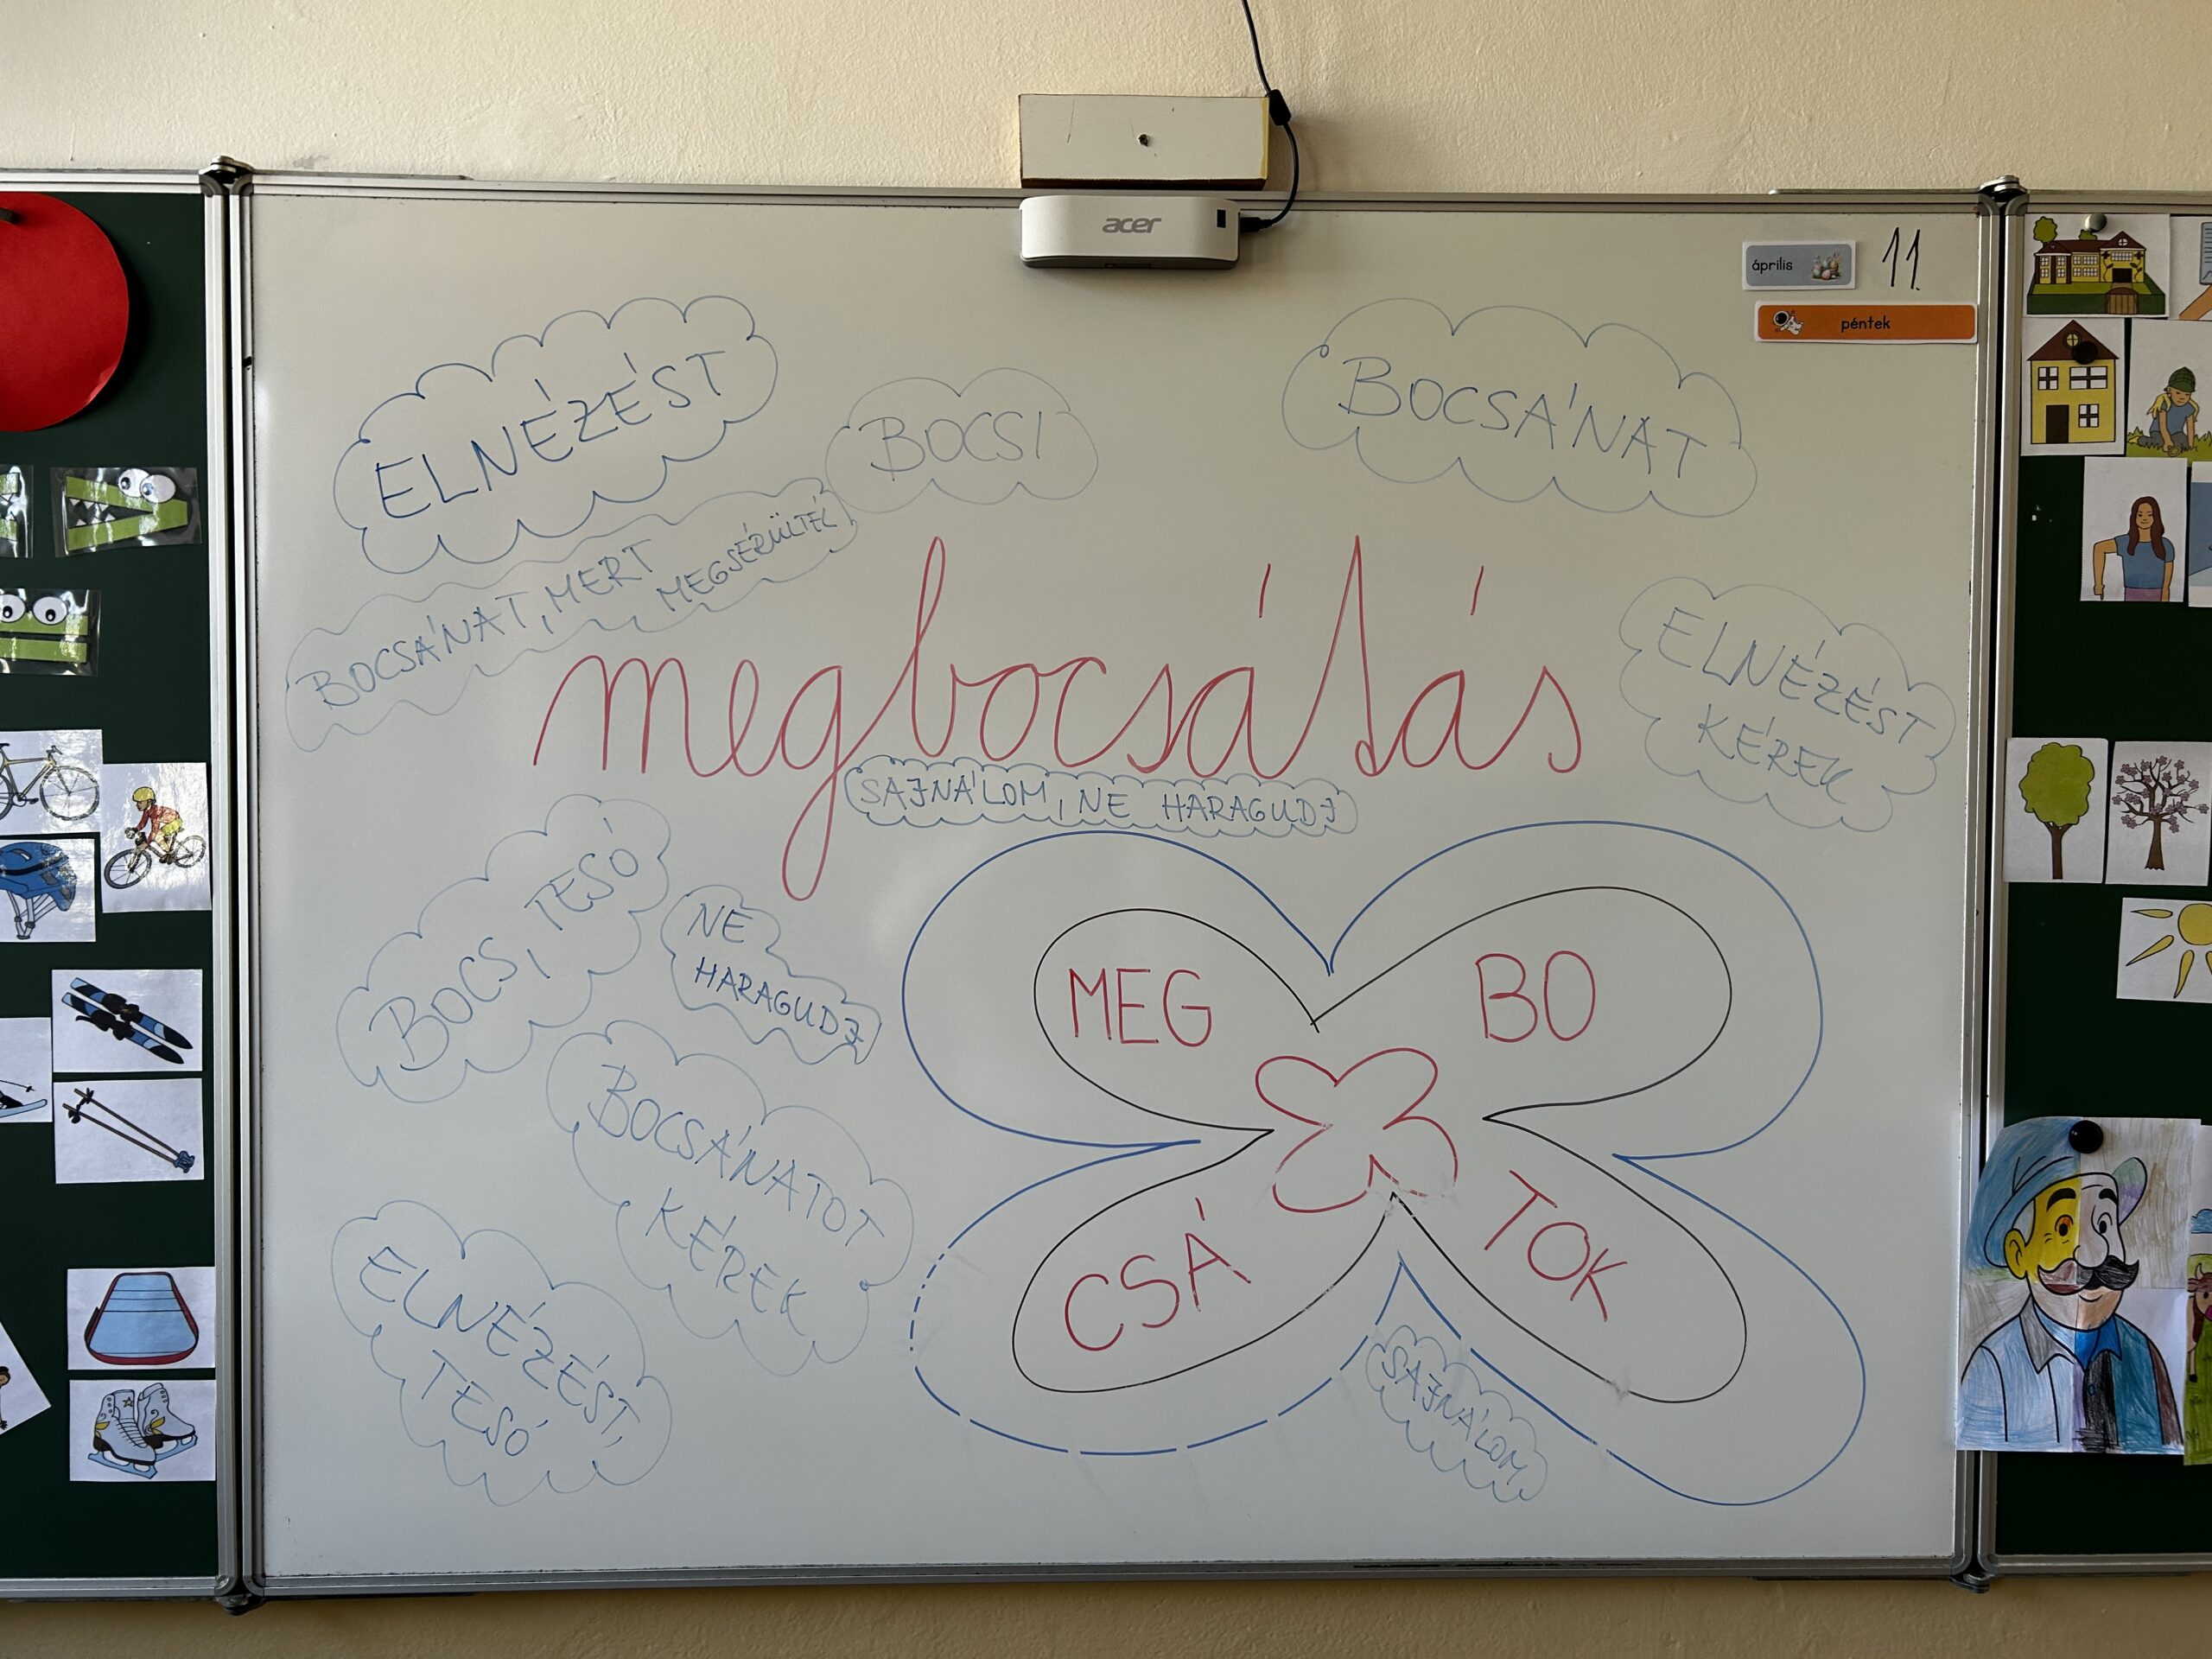 acer
április 11.
péntek
ELNÉZÉST
BOCSI
BOCSÁNAT
BOCSÁNAT, MERT
MEGSÉRÜLTÉL
megbocsátás
ELNÉZÉST
KÉREK
SAJNÁLOM, NE HARAGUDJ
BOCS, TESÓ
NE
HARAGUDJ
MEG
BO
CSÁ
TOK
BOCSÁNATOT
KÉREK
ELNÉZÉST,
TESÓ
SAJNÁLOM